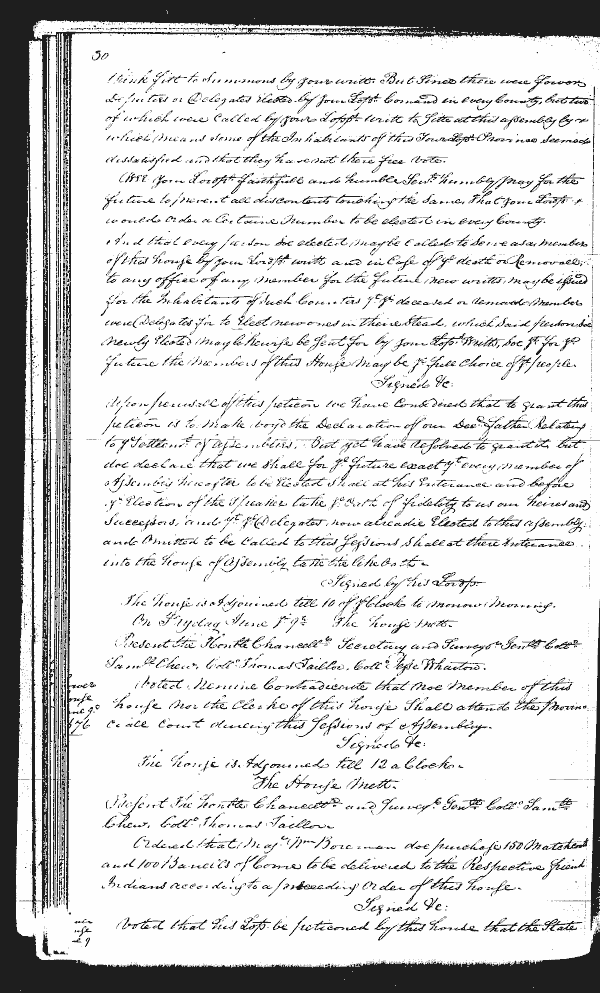 30
think fitt to Summons by your writt But Since there were fower
Deputies or Delegates Elected by your Lopps Comand in every County but two
of which were Called by your Lopps Writts to Sitt at this assembly by
which means some of the Inhabitants of this Your Lopps Province seemed
dissatisfied and that they have not there free Vote.
Wee your Lordps faithfull and humble Servts humbly pray for the
future to prevent all discontents touching the Same That your Lordp
would order a Certaine number to be elected in every County.
And that every person soe elected may be Called to Serve as a member
of this house by your Lordps writt and in Case of ye death or Removeall
to any office of any member for the future new writts may be issued
for the Inhabitants of such Countys yt ye deceased or removed member
were Delegates for to Elect new ones in their Stead, which said persons soe
newly Elected may likewise be Sent for by your Lopps Writts, Soe yt for ye
future the members of this House may be ye full Choice of ye people.
Signed &c:
Upon perusall of this peticon we have Considered that to grant this
peticon is to make voyd the Declaration of our Decd father Relating
to ye Settlemt of Assemblies. But yet have resolved to grant it but
doe declare that we shall for ye future exact yt every member of
Assembly hereafter to be Elected shall at his Enterance and before
ye Election of the Speaker take ye Oath of fidelity to us our heires and
Successors, and yt ye Delegates now alreadie Elected to this Assembly
and Omitted to be Called to this Sessions Shall at there Enterance
into the house of Assembly take the like Oath.
Signed by his Lordp.
The house is Adjourned till 10 of ye Clock to morrow Morning.
On Fryday June ye 9th The house Mett.
Present the Honble Chancellr Secretary and Surveyr Genll Collo
Samll Chew, Collo Thomas Taillor, Collo Jesse Wharton.
Voted Nemine Contradicente that noe member of this
house nor the Clerke of this house Shall attend the Provin-
ciale Court dureing this Sessions of Assembly.
Signed &c:
The house is Adjourned till 12 a Clock.
The House Mett.
Present The honble Chancellr and Surveyr Genll Collo Samll
Chew. Collo Thomas Taillor
Ordered that Majr Wm Boreman doe purchase 150 Matchcoats
and 100 Barrells of Corne to be delivered to the Respective friend
Indians according to a preceeding Order of this house.
Signed &c:
Voted that his Lopp be peticoned by this house that the State